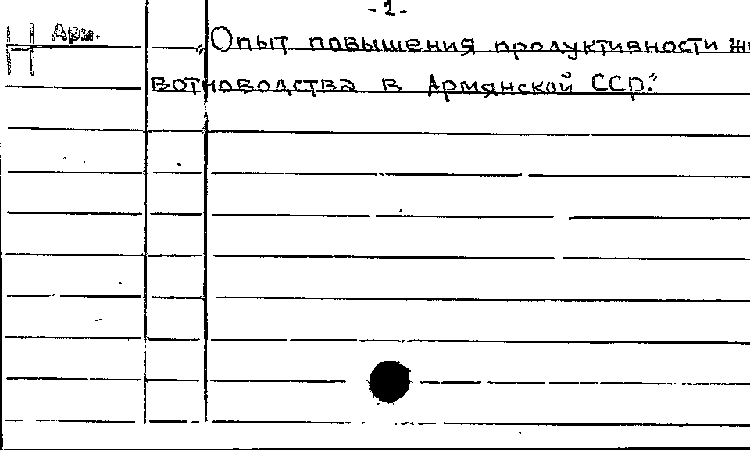 -1-
Н Арм.
„Опыт повышения продуктивности жи
вотноводства в Армянской ССР."